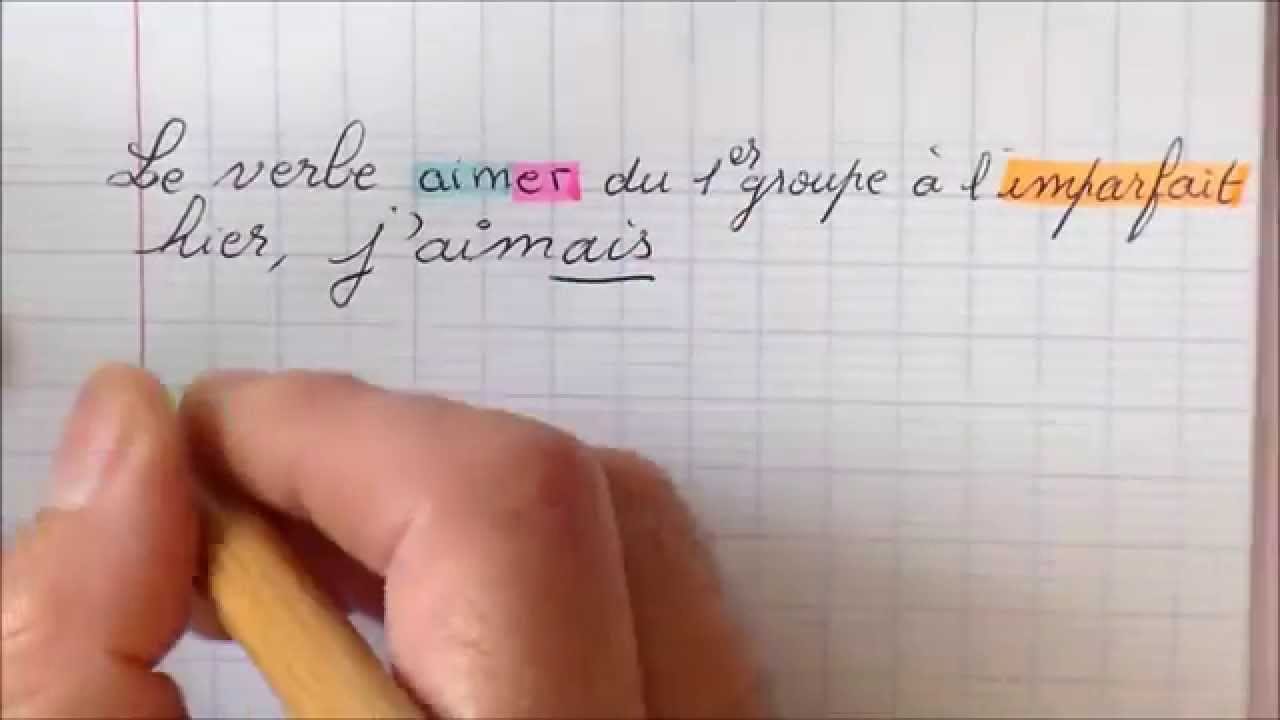 Le verbe aimer du 1er groupe à l'imparfait
hier, j'aimais